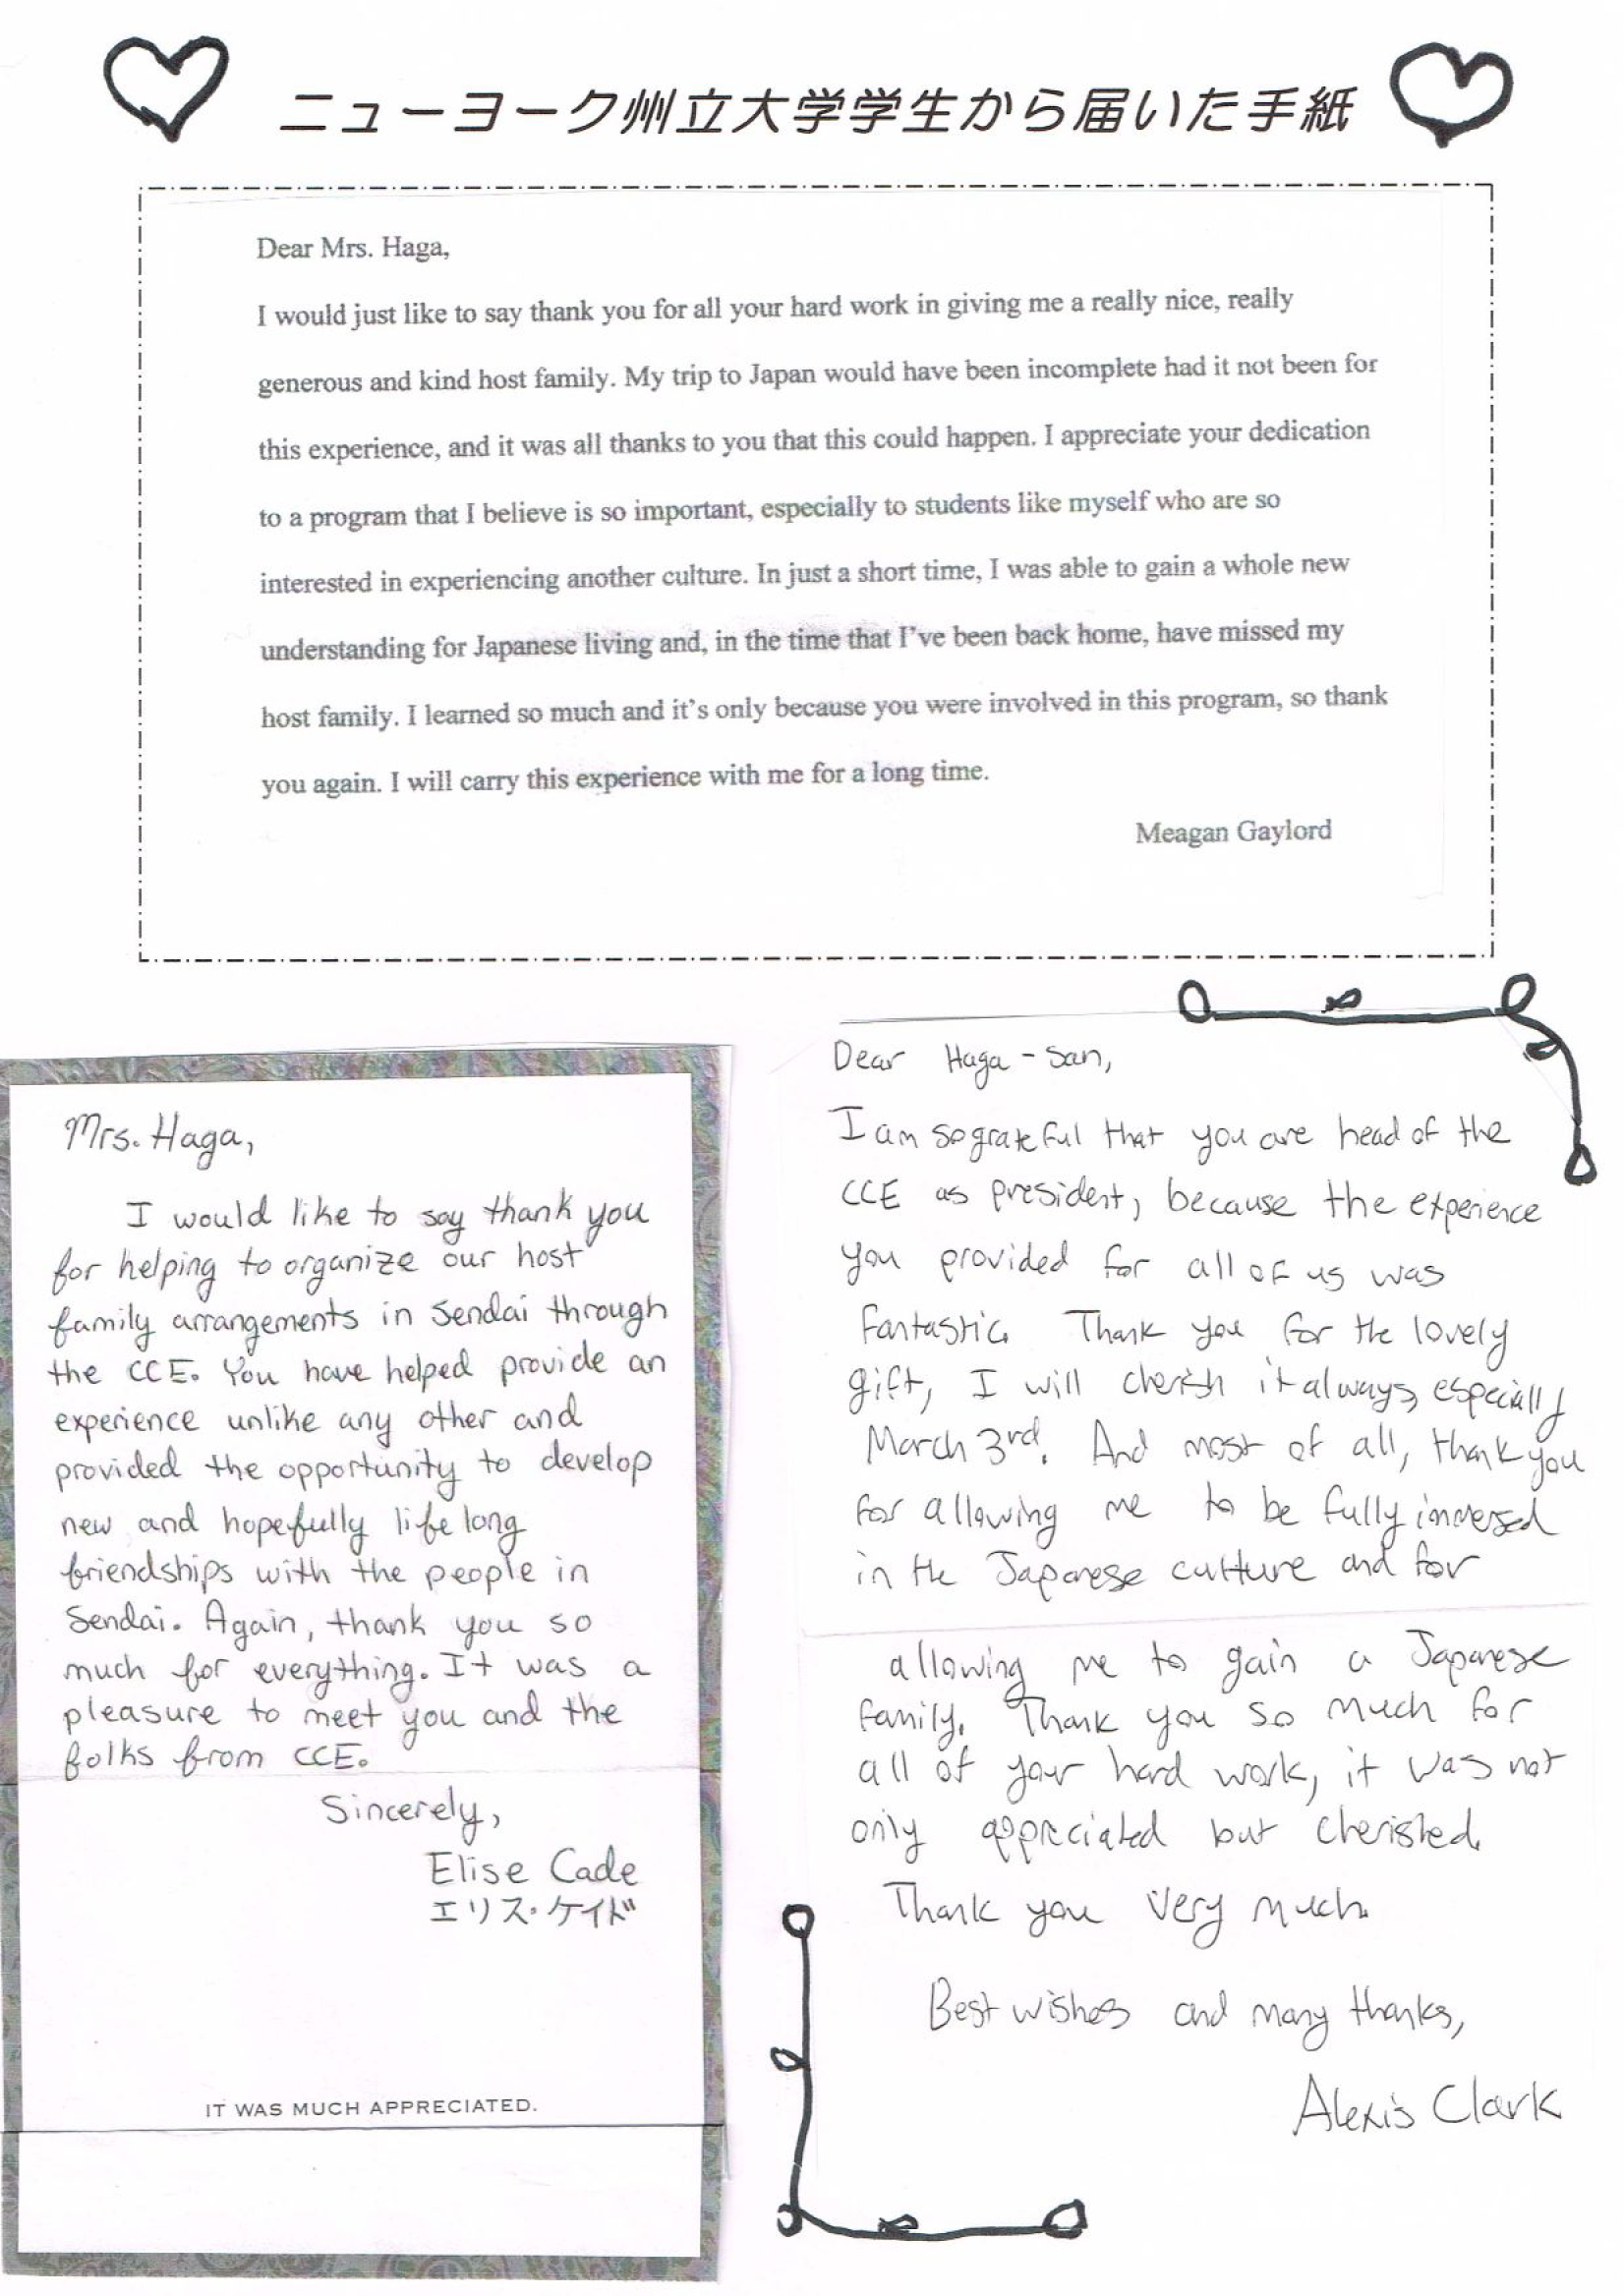 ニューヨーク州立大学学生から届いた手紙
Dear Mrs. Haga,
I would just like to say thank you for all your hard work in giving me a really nice, really
generous and kind host family. My trip to Japan would have been incomplete had it not been for
this experience, and it was all thanks to you that this could happen. I appreciate your dedication
to a program that I believe is so important, especially to students like myself who are so
interested in experiencing another culture. In just a short time, I was able to gain a whole new
understanding for Japanese living and, in the time that I've been back home, have missed my
host family. I learned so much and it's only because you were involved in this program, so thank
you again. I will carry this experience with me for a long time.
Meagan Gaylord
Mrs. Haga,
I would like to say thank you
for helping to organize our host
family arrangements in Sendai through
the CCE. You have helped provide an
experience unlike any other and
provided the opportunity to develop
new and hopefully life long
friendships with the people in
Sendai. Again, thank you so
much for everything. It was a
pleasure to meet you and the
folks from CCE.
Sincerely,
Elise Cade
エリス・ケイド
IT WAS MUCH APPRECIATED.
Dear Haga-san,
I am so grateful that you are head of the
CCE as president, because the experience
you provided for all of us was
fantastic. Thank you for the lovely
gift, I will cherish it always, especially
March 3rd. And most of all, thank you
for allowing me to be fully immersed
in the Japanese culture and for
allowing me to gain a Japanese
family. Thank you so much for
all of your hard work, it was not
only appreciated but cherished.
Thank you very much.
Best wishes and many thanks,
Alexis Clark